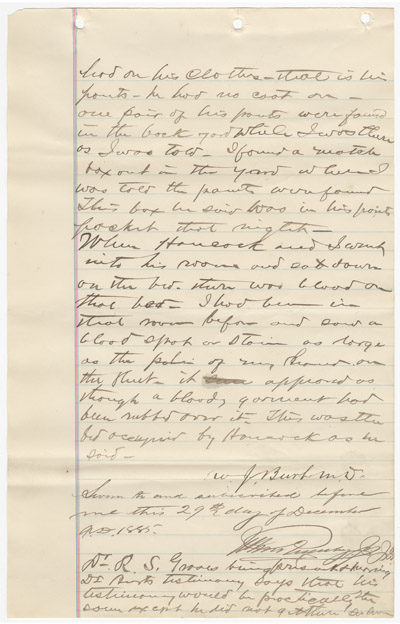 had on his clothes - that is his
pants - he had no coat on -
one pair of his pants were found
in the back yard while I was there
as I was told - I found a match
box out in the yard where I
was told the pants were found
This box he said was in his pants
pocket that night -
When Hancock and I went
into his room and sat down
on the bed. there was blood on
that bed - I had been in
that room before and saw a
blood spot or stain as large
as the palm of my hand on
the sheet - it appeared as
though a bloody garment had
been rubbed over it. This was the
bed occupied by Hancock as he
said -
W. J. Burt M.D.
Sworn to and subscribed before
me this 29th day of December
A.D. 1885.
Dr. R. S. Graves being present & hearing
Dr Burts testimony says that his
testimony would be practically the
same except he did not